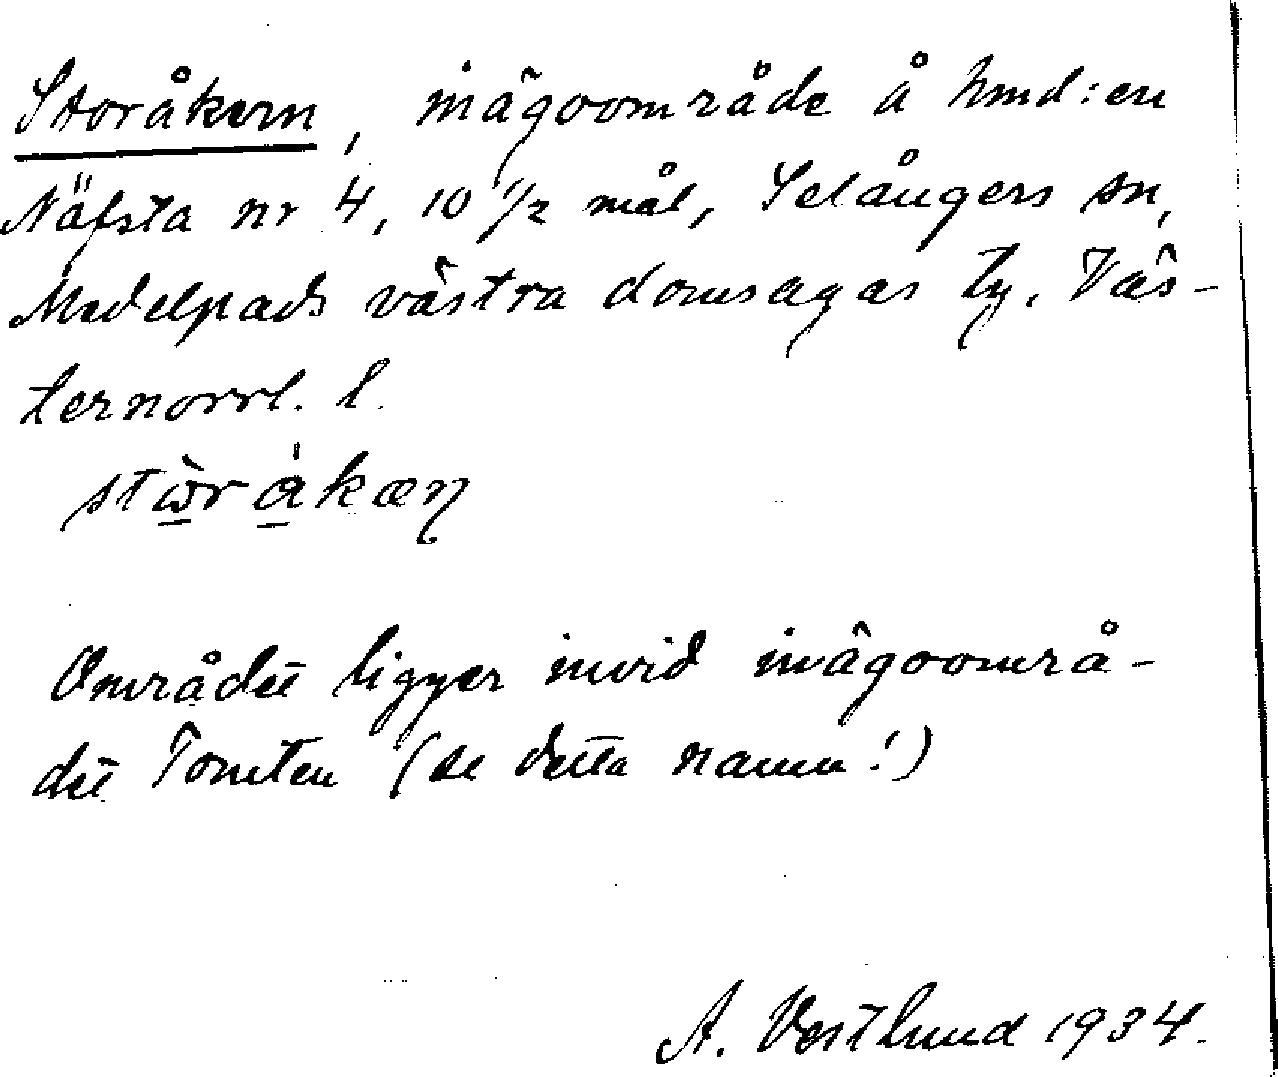 Storåkern, inägoområde å hmd:en
Näfsta nr 4, 10 1/2 mål, Selångers sn,
Medelpads västra domsagas tg. Väs-
ternorrl. l.
stὼrákæn
Området ligger invid inägoområ-
det Tomten (se detta namn!)
A. Vestlund 1934.